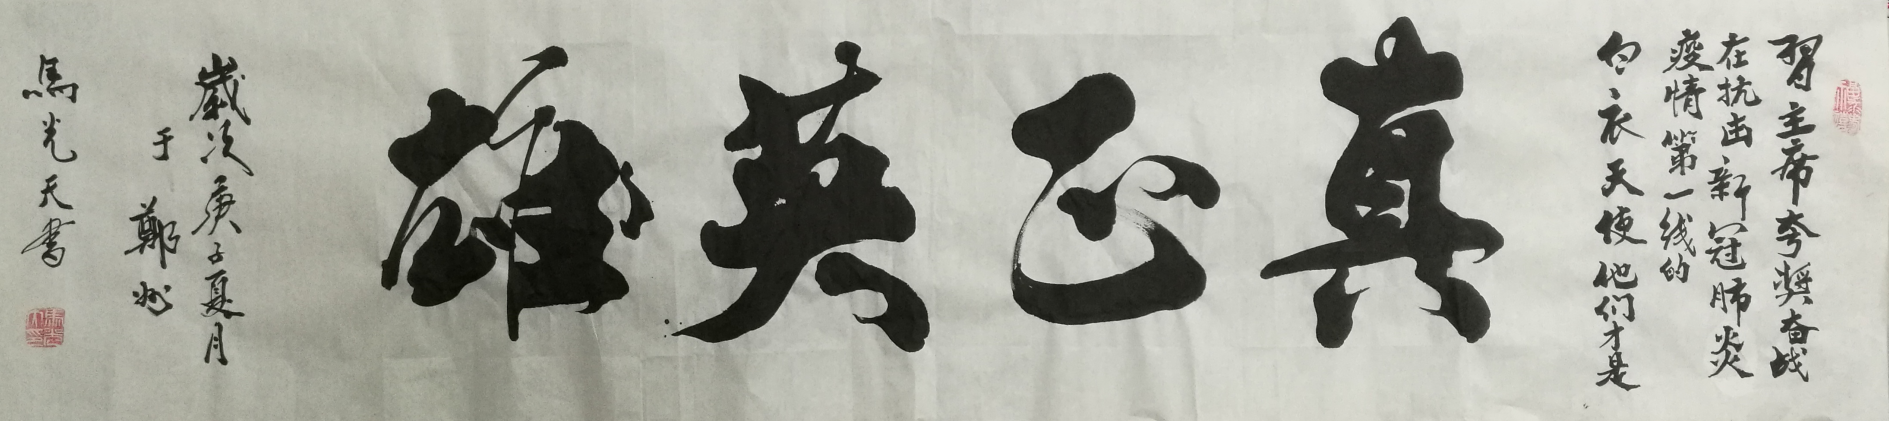 習主席夸獎奋战
在抗击新冠肺炎
疫情第一线的
白衣天使他们才是
真正英雄
歲次庚子夏月
于鄭州
馬光天書